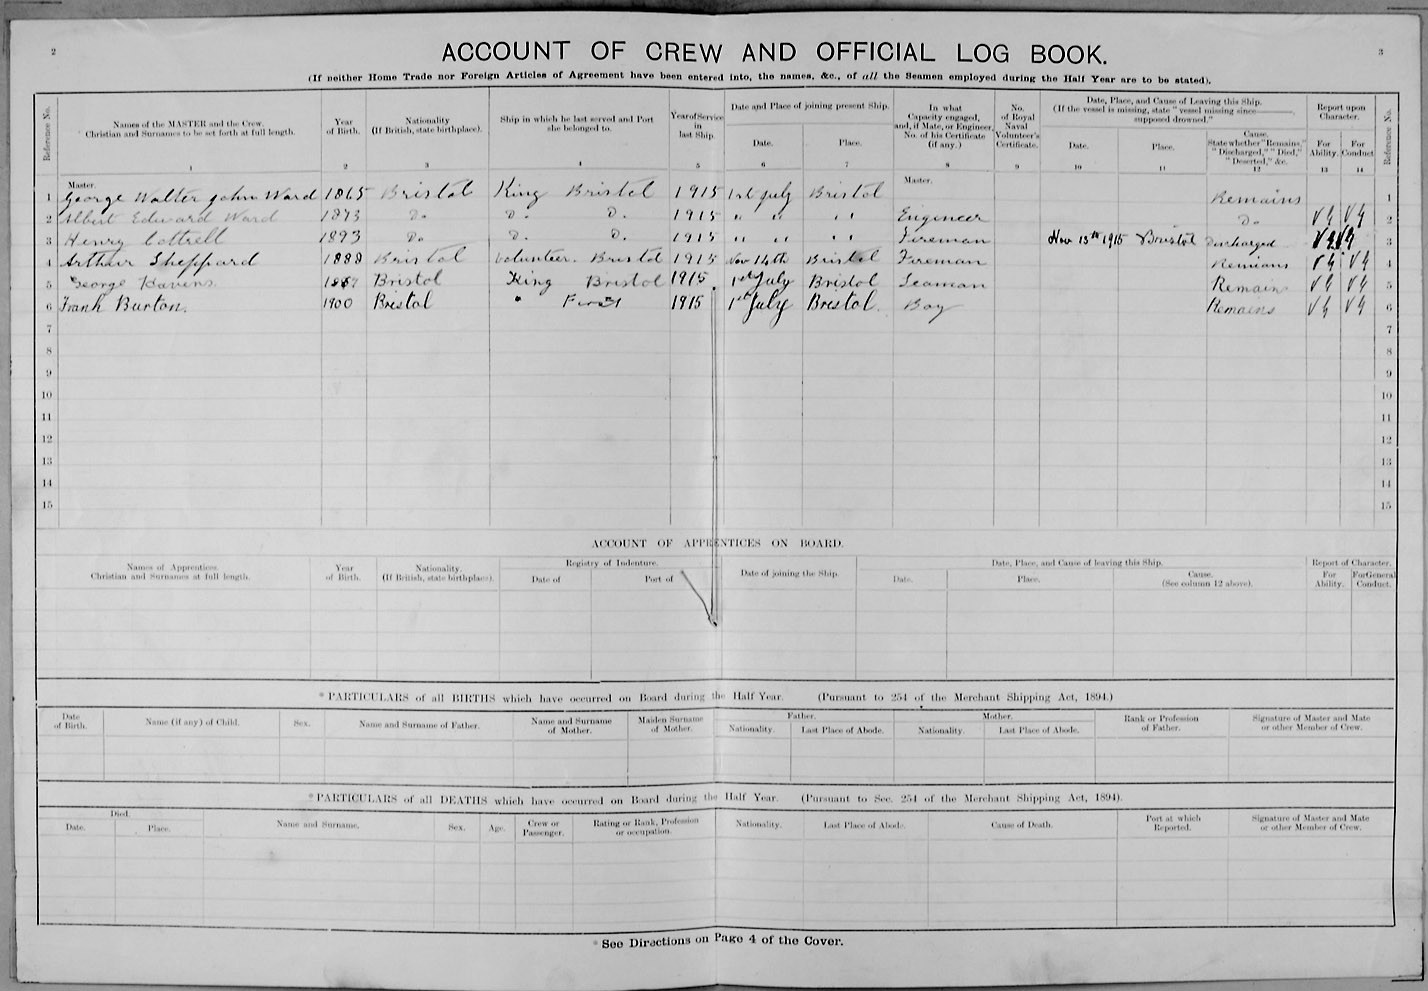 2
ACCOUNT OF CREW AND OFFICIAL LOG BOOK.
3
(If neither Home Trade nor Foreign Articles of Agreement have been entered into, the names, &c., of all the Seamen employed during the Half Year are to be stated).
Reference No. Names of the MASTER and the Crew. Christian and Surnames to be set forth at full length. Year of Birth. Nationality (If British, state birthplace). Ship in which he last served and Port she belonged to. Year of Service in last Ship. Date and Place of joining present Ship. Date. Place. In what Capacity engaged, and, if Mate, or Engineer, No. of his Certificate (if any.) No. of Royal Naval Volunteer's Certificate. Date, Place, and Cause of Leaving this Ship. (If the vessel is missing, state "vessel missing since ———, supposed drowned.") Date. Place. Cause. State whether "Remains," "Discharged," "Died," "Deserted," &c. Report upon Character. For Ability. For Conduct Reference No.
1 2 3 4 5 6 7 8 9 10 11 12 13 14
Master. Master.
1 George Walter John Ward 1865 Bristol King Bristol 1915 1st July Bristol Remains 1
2 Albert Edward Ward 1873 Do D. D. 1915 " " " Engineer Do VG VG 2
3 Henry Cottrell 1893 Do D. D. 1915 " " " Fireman Nov 13th 1915 Bristol Discharged VG VG 3
4 Arthur Sheppard 1888 Bristol Volunteer. Bristol 1915 Nov 14th Bristol Fireman Remians VG VG 4
5 George 1867 Bristol King Bristol 1915. 1st July Bristol Seaman Remains VG VG 5
6 Frank Burton. 1900 Bristol " First 1915 1st July Bristol. Boy Remains VG VG 6
7 7
8 8
9 9
10 10
11 11
12 12
13 13
14 14
15 15
ACCOUNT OF APPRENTICES ON BOARD.
Names of Apprentices. Christian and Surnames at full length. Year of Birth. Nationality. (If British, state birthplace). Registry of Indenture. Date of Port of Date of joining the Ship. Date, Place, and Cause of leaving this Ship. Date. Place. Cause. (See column 12 above). Report of Character. For Ability. For General Conduct.
* PARTICULARS of all BIRTHS which have occurred on Board during the Half Year. (Pursuant to 254 of the Merchant Shipping Act, 1894.)
Date of Birth. Name (if any) of Child. Sex. Name and Surname of Father. Name and Surname of Mother. Maiden Surname of Mother. Father. Nationality. Last Place of Abode. Mother. Nationality. Last Place of Abode. Rank or Profession of Father. Signature of Master and Mate or other Member of Crew.
* PARTICULARS of all DEATHS which have occurred on Board during the Half Year. (Pursuant to Sec. 254 of the Merchant Shipping Act, 1894).
Died. Date. Place. Name and Surname. Sex. Age. Crew or Passenger. Rating or Rank, Profession or occupation. Nationality. Last Place of Abode. Cause of Death. Port at which Reported. Signature of Master and Mate or other Member of Crew.
* See Directions on Page 4 of the Cover.